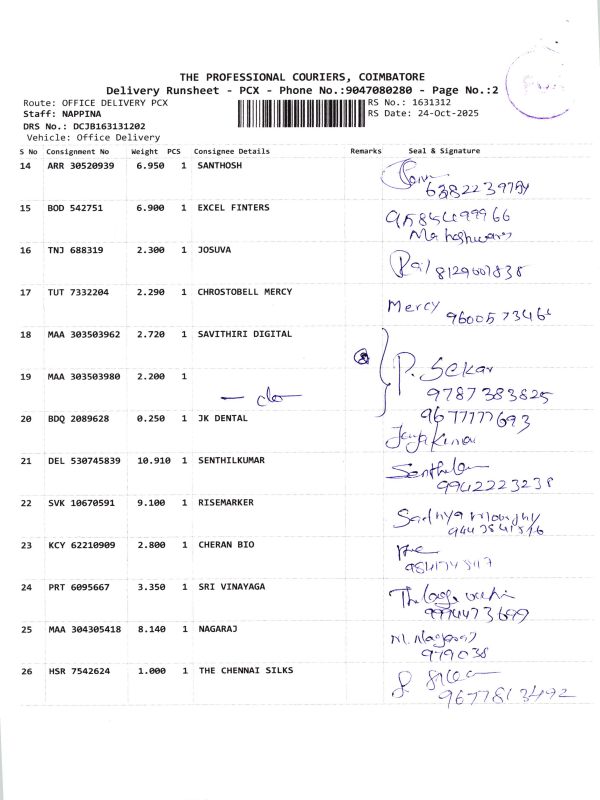 THE PROFESSIONAL COURIERS, COIMBATORE
Delivery Runsheet - PCX - Phone No.:9047080280 - Page No.:2
Route: OFFICE DELIVERY PCX
RS No.: 1631312
Staff: NAPPINA
RS Date: 24-Oct-2025
DRS No.: DCJB163131202
Vehicle: Office Delivery
S No Consignment No Weight PCS Consignee Details Remarks Seal & Signature
14 ARR 30520939 6.950 1 SANTHOSH
15 BOD 542751 6.900 1 EXCEL FINTERS
Maheshwari
16 TNJ 688319 2.300 1 JOSUVA
17 TUT 7332204 2.290 1 CHROSTOBELL MERCY
Mercy
18 MAA 303503962 2.720 1 SAVITHIRI DIGITAL
P. Sekar
19 MAA 303503980 2.200 1
— do —
9787383825
20 BDQ 2089628 0.250 1 JK DENTAL
9677777693
21 DEL 530745839 10.910 1 SENTHILKUMAR
9942223238
22 SVK 10670591 9.100 1 RISEMARKER
23 KCY 62210909 2.800 1 CHERAN BIO
24 PRT 6095667 3.350 1 SRI VINAYAGA
25 MAA 304305418 8.140 1 NAGARAJ
979038
26 HSR 7542624 1.000 1 THE CHENNAI SILKS
9677813492